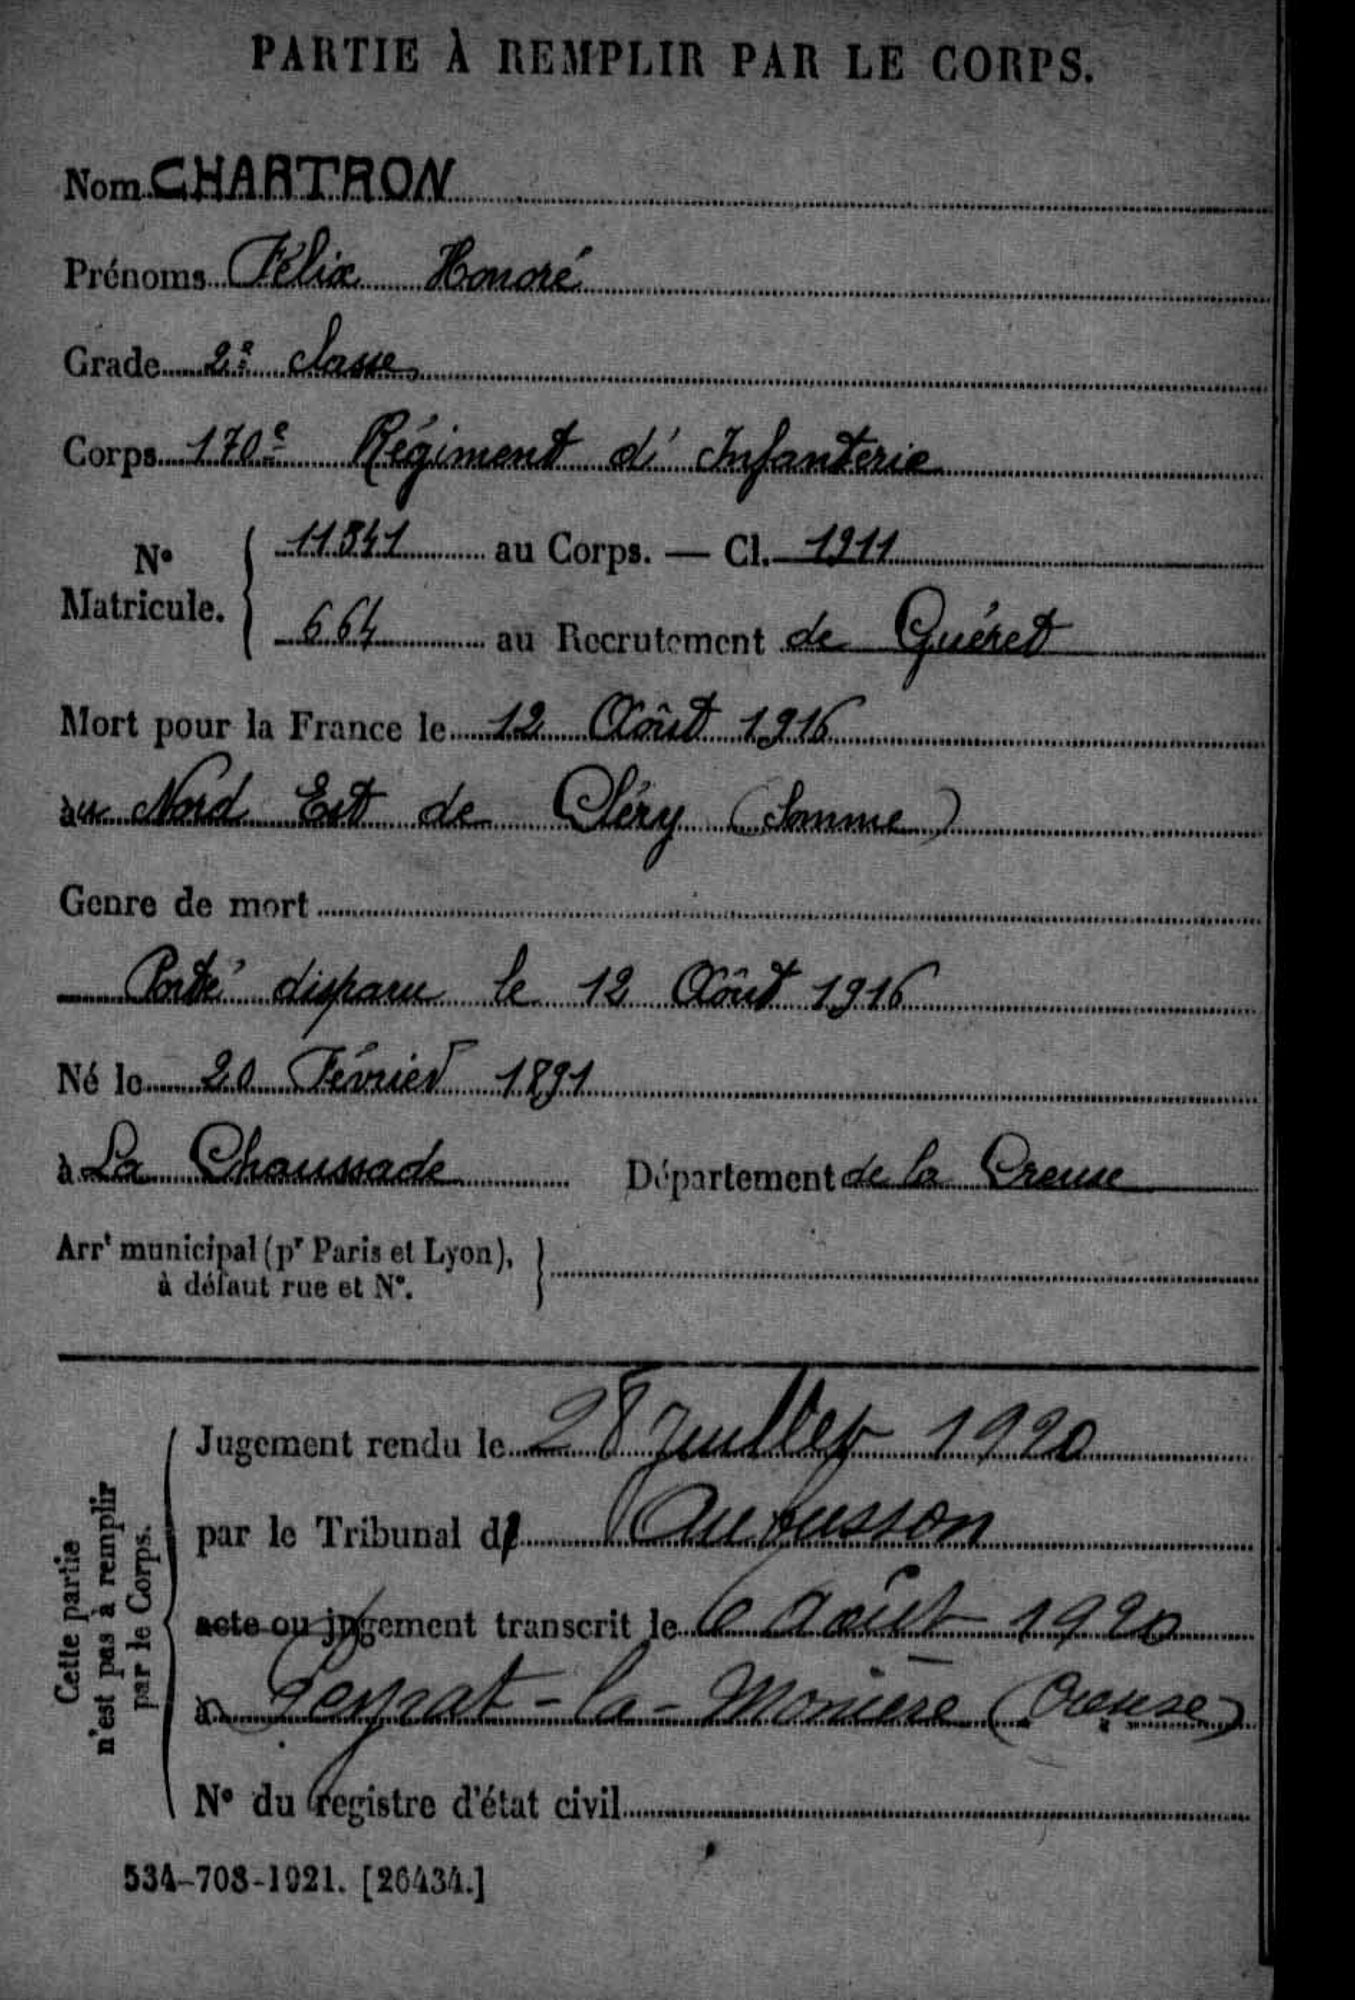 PARTIE À REMPLIR PAR LE CORPS.
Nom CHARTRON
Prénoms Félix Honoré
Grade 2e classe
Corps 170e Régiment d'Infanterie
N° Matricule.
11841 au Corps. — Cl. 1911
664 au Recrutement de Guéret
Mort pour la France le 12 Août 1916
au Nord Est de Cléry (Somme)
Genre de mort
Porté disparu le 12 Août 1916
Né le 20 Février 1891
à La Chaussade Département de la Creuse
Arrt municipal (pr Paris et Lyon),
à défaut rue et N°.
Cette partie
n'est pas à remplir
par le Corps.
Jugement rendu le 28 Juillet 1920
par le Tribunal d' Aubusson
acte ou jugement transcrit le 6 Août 1920
à Peyrat-la-Nonière (Creuse)
N° du registre d'état civil
534-708-1921. [26434.]